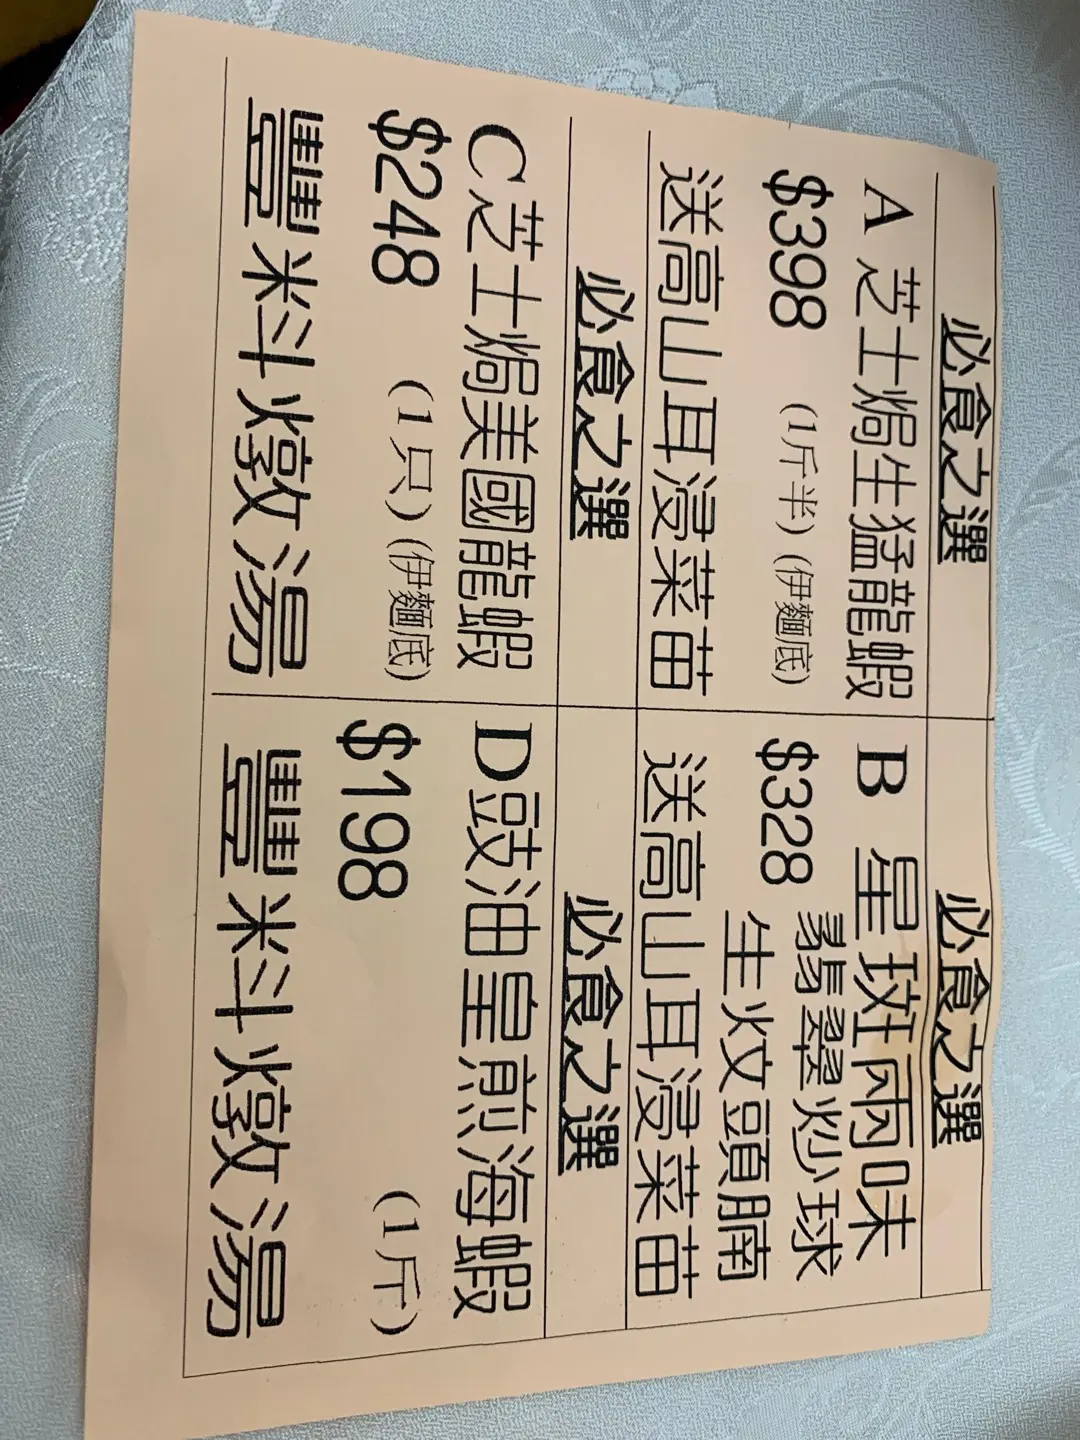 必食之選
A 芝士焗生猛龍蝦
$398 (1斤半)(伊麵底)
送高山耳浸菜苗
必食之選
B 星斑兩味
$328 翡翠炒球
生炆頭腩
送高山耳浸菜苗
必食之選
C芝士焗美國龍蝦
$248 (1只)(伊麵底)
豐料燉湯
必食之選
D豉油皇煎海蝦
$198 (1斤)
豐料燉湯